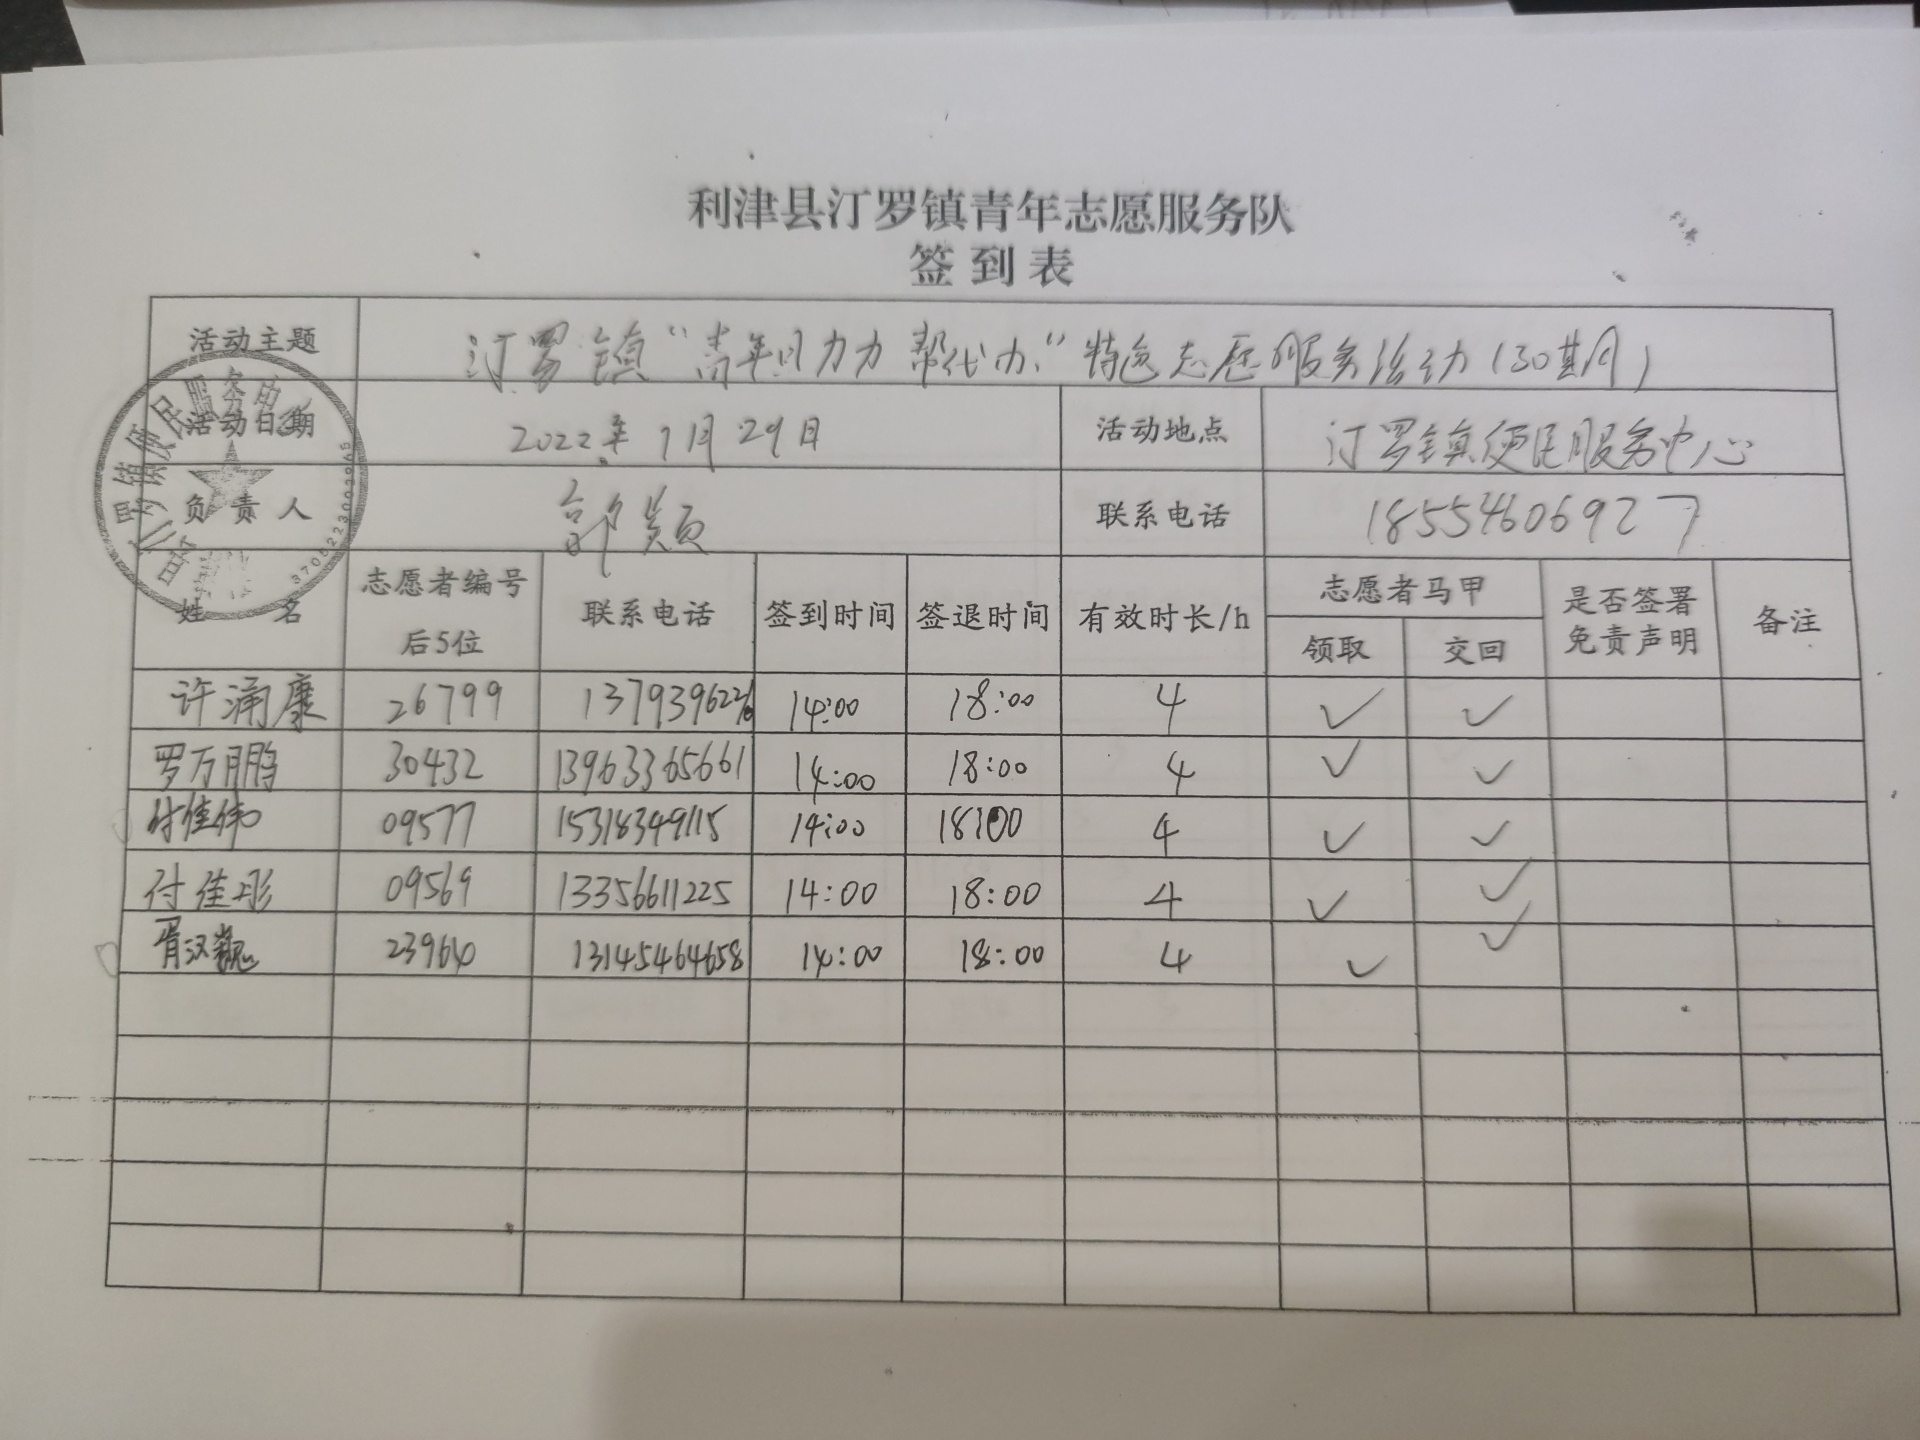 利津县汀罗镇青年志愿服务队
签到表
活动主题 汀罗镇“青年助力 帮代办”特色志愿服务活动(30期)
活动日期 2022年7月29日 活动地点 汀罗镇便民服务中心
负责人 郭颖 联系电话 18554606927
姓名 志愿者编号后5位 联系电话 签到时间 签退时间 有效时长/h 志愿者马甲 是否签署免责声明 备注
领取 交回
许涌康 26799 137939622 14:00 18:00 4 ✓ ✓
罗万鹏 30432 13963365661 14:00 18:00 4 ✓ ✓
付佳伟 09577 15318349115 14:00 18:00 4 ✓ ✓
付佳彤 09569 13356611225 14:00 18:00 4 ✓ ✓
胥汉巍 23960 13145464658 14:00 18:00 4 ✓ ✓
罗镇便民服务
3705223002965